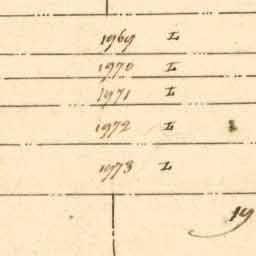 1969 L
1970 L
1971 L
1972 L
1973 L
19